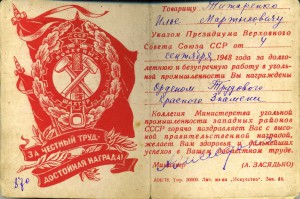 ЗА ЧЕСТНЫЙ ТРУД-
ДОСТОЙНАЯ НАГРАДА!
870
Товарищу Титаренко
Илье Мартыновичу
Указом Президиума Верховного
Совета Союза ССР от 4
сентября 1948 года за долго-
летнюю и безупречную работу в уголь-
ной промышленности Вы награждены
Орденом Трудового
Красного Знамени
Коллегия Министерства угольной
промышленности западных районов
СССР горячо поздравляет Вас с высо-
кой правительственной наградой,
желает Вам здоровья и дальнейших
успехов в Вашей работе труде.
Министр (А. ЗАСЯДЬКО)